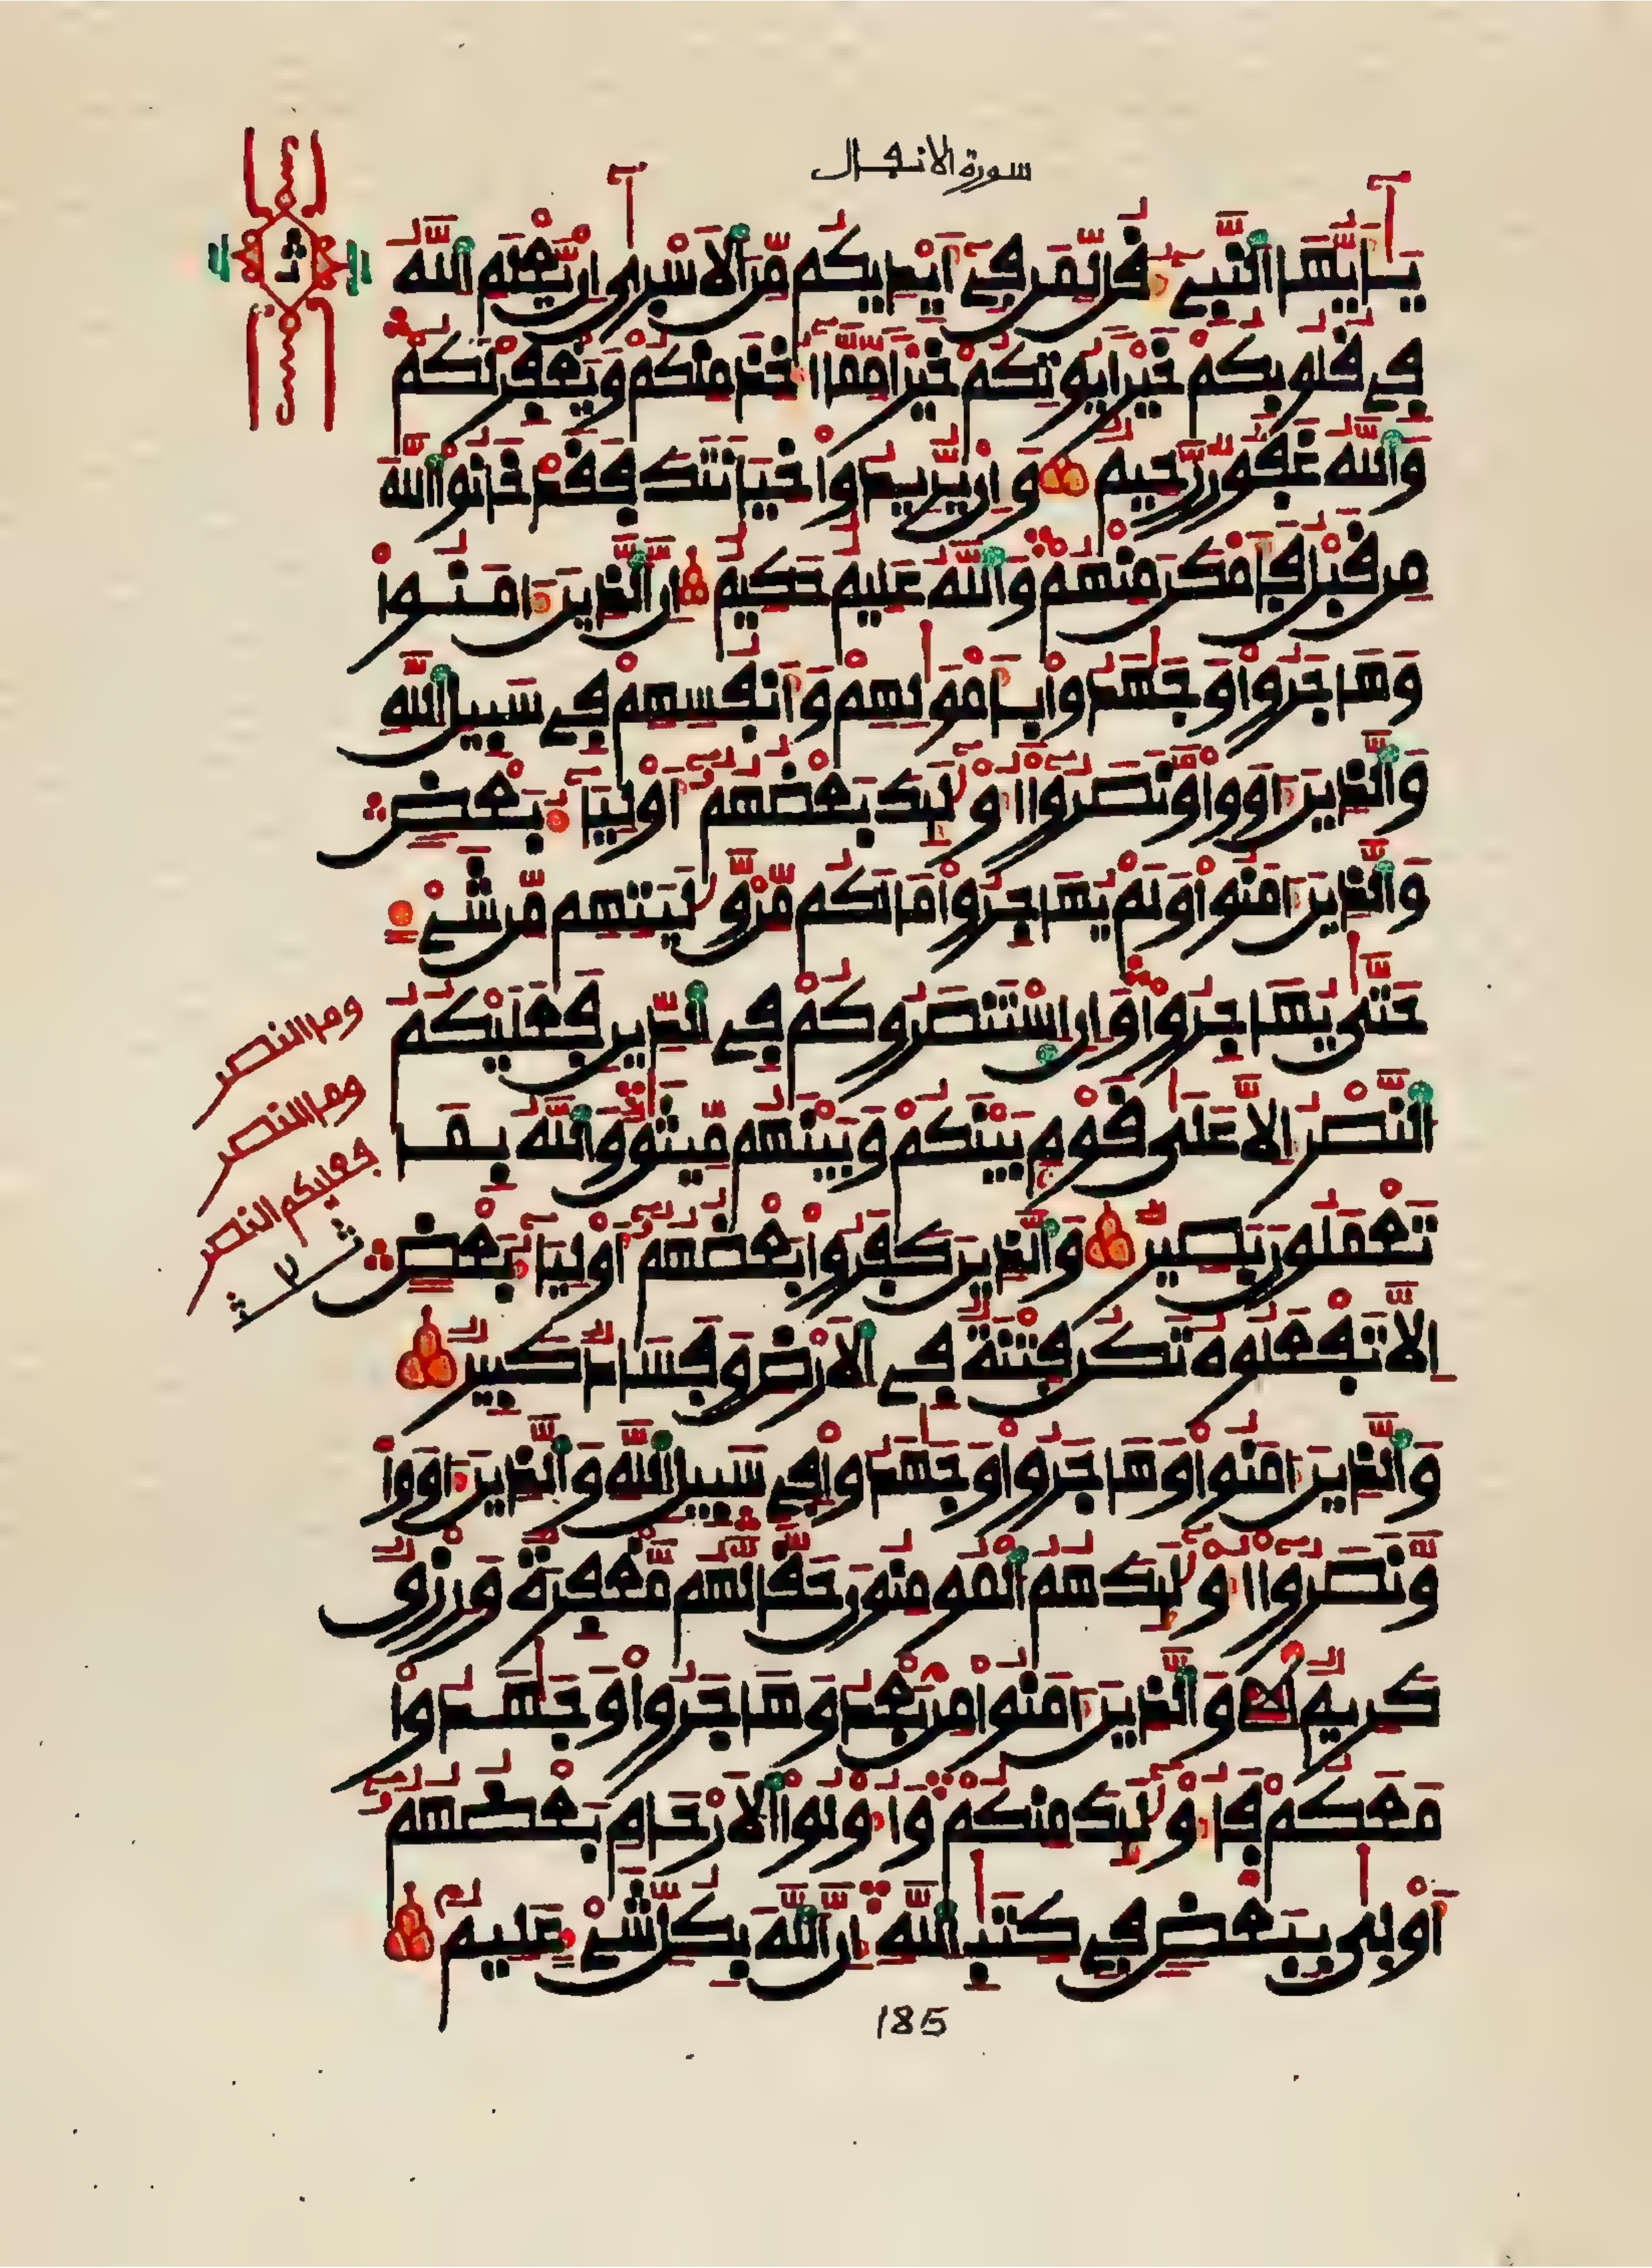 سورة الانفال
يَٰٓأَيُّهَا ٱلنَّبِےٓءُ قُل لِّمَن فِےٓ أَيْدِيكُم مِّنَ ٱلْأَسْرَىٰٓ إِنْ يَّعْلَمِ ٱللَّهُ
فِے قُلُوبِكُمْ خَيْراً يُوتِكُمْ خَيْراً مِّمَّآ أُخِذَ مِنكُمْ وَيَغْفِرْ لَكُمْ
وَٱللَّهُ غَفُورٌ رَّحِيمٌ وَإِنْ يُّرِيدُواْ خِيَانَتَكَ فَقَدْ خَانُواْ ٱللَّهَ
مِن قَبْلُ فَأَمْكَنَ مِنْهُمْ وَٱللَّهُ عَلِيمٌ حَكِيمٌ إِنَّ ٱلَّذِينَ ءَامَنُواْ
وَهَاجَرُواْ وَجَٰهَدُواْ بِأَمْوَٰلِهِمْ وَأَنفُسِهِمْ فِے سَبِيلِ ٱللَّهِ
وَٱلَّذِينَ ءَاوَواْ وَّنَصَرُوٓاْ أُوْلَٰٓئِكَ بَعْضُهُمُۥٓ أَوْلِيَآءُ بَعْضٍ
وَٱلَّذِينَ ءَامَنُواْ وَلَمْ يُهَاجِرُواْ مَا لَكُم مِّنْ وَّلَٰيَتِهِم مِّن شَےْءٍ
حَتَّىٰ يُهَاجِرُواْ وَإِنِ ٱسْتَنصَرُوكُمْ فِے ٱلدِّينِ فَعَلَيْكُمُ
ٱلنَّصْرُ إِلَّا عَلَىٰ قَوْمٍ بَيْنَكُمْ وَبَيْنَهُم مِّيثَٰقٌ وَٱللَّهُ بِمَا
تَعْمَلُونَ بَصِيرٌ وَٱلَّذِينَ كَفَرُواْ بَعْضُهُمُۥٓ أَوْلِيَآءُ بَعْضٍ
إِلَّا تَفْعَلُوهُ تَكُن فِتْنَةٌ فِے ٱلْأَرْضِ وَفَسَادٌ كَبِيرٌ
وَٱلَّذِينَ ءَامَنُواْ وَهَاجَرُواْ وَجَٰهَدُواْ فِے سَبِيلِ ٱللَّهِ وَٱلَّذِينَ ءَاوَواْ
وَّنَصَرُوٓاْ أُوْلَٰٓئِكَ هُمُ ٱلْمُومِنُونَ حَقّاً لَّهُم مَّغْفِرَةٌ وَرِزْقٌ
كَرِيمٌ وَٱلَّذِينَ ءَامَنُواْ مِنۢ بَعْدُ وَهَاجَرُواْ وَجَٰهَدُواْ
مَعَكُمْ فَأُوْلَٰٓئِكَ مِنكُمْ وَأُوْلُواْ ٱلْأَرْحَامِ بَعْضُهُمُۥٓ
أَوْلَىٰ بِبَعْضٍ فِے كِتَٰبِ ٱللَّهِ إِنَّ ٱللَّهَ بِكُلِّ شَےْءٍ عَلِيمٌ
ومن النصر
ومن النصر
فعليكم النصر
185